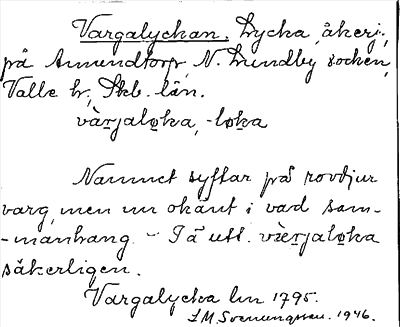 Vargalyckan. Lycka, åkerj.,
på Amundtorp, N. Lundby socken,
Valle hr, Skb. län.
vàrjalo̱ka, -lo̱ka
Namnet syftar på rovdjur
varg, men nu okänt i vad sam-
-manhang. - Tä utt. vàe̱rjalo̱ka
säkerligen.
Vargalycka lm 1795.
1946.